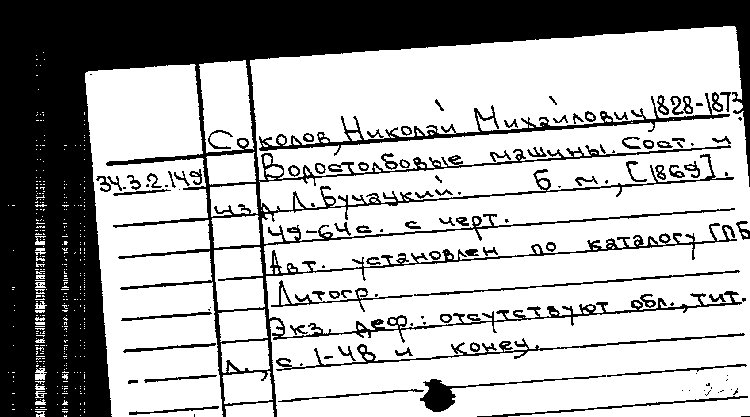 Соколов, Николай Михайлович, 1828-1873
34.3.2.149
Водостолбовые машины. Сост. и
изд. Л. Бучацкий. Б. м., [1869].
49-64 с. с черт.
Авт. установлен по каталогу ГПБ
Литогр.
Экз. деф.: отсутствуют обл., тит.
л., с. 1-48 и конец.